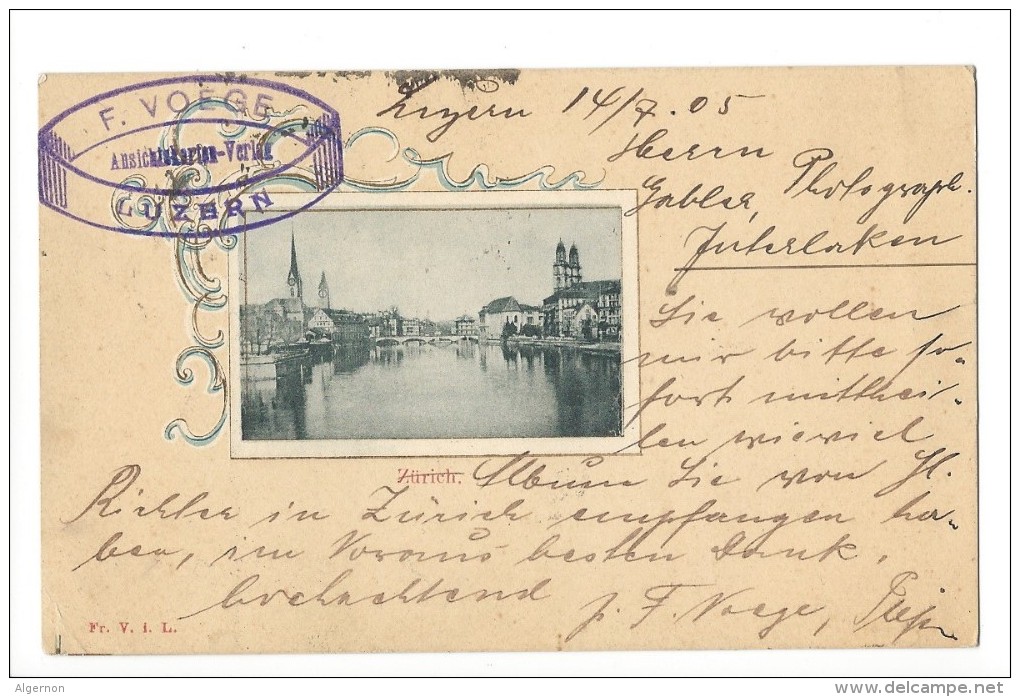 F. VOEGE
Ansichtskarten-Verlag
LUZERN
Luzern 14/7.05
Herrn
Gabler, Photograph.
Interlaken
Sie wollen
mir bitte so-
fort mitthei-
len wieviel
Zürich. Album Sie von H.
Richter in Zürich empfangen ha-
ben, im Voraus besten Dank,
hochachtend
p. F. Voege,
Fr. V. i. L.
Algernon
delcampe.net